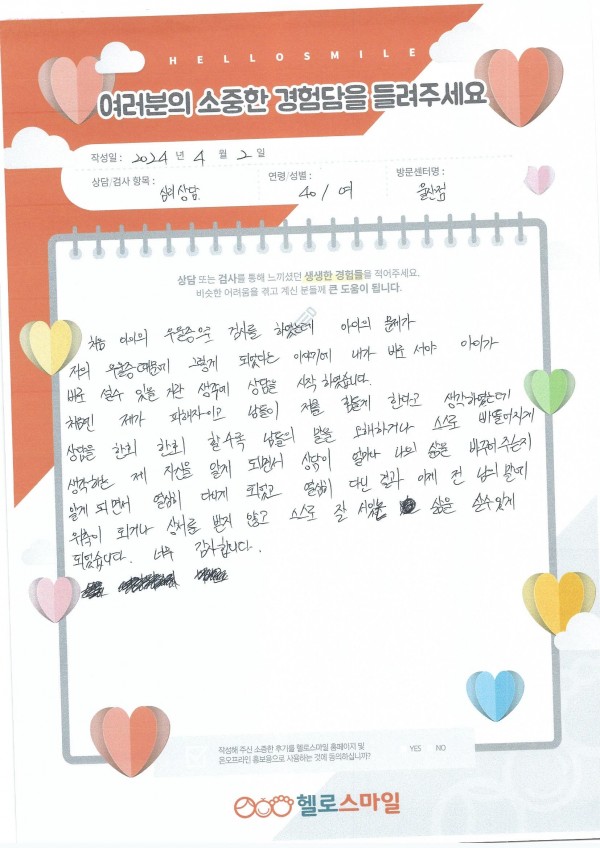 HELLOSMILE
여러분의 소중한 경험담을 들려주세요
작성일 : 2024 년 4 월 2 일
상담/검사 항목 : 심리상담
연령/성별 : 40 / 여
방문센터명 : 울산점
상담 또는 검사를 통해 느끼셨던 생생한 경험들을 적어주세요.
비슷한 어려움을 겪고 계신 분들께 큰 도움이 됩니다.
처음 아이의 우울증으로 검사를 하였는데 아이의 문제가
저의 우울증때문에 그렇게 되었다는 이야기에 내가 바로 서야 아이가
바로 설수 있을거란 생각에 상담을 시작 하였습니다.
처음엔 제가 피해자이고 남들이 저를 힘들게 한다고 생각하였는데
상담을 한회 한회 할수록 남들의 말을 오해하거나 스스로 삐뚤어지게
생각하는 제 자신을 알게 되면서 상담이 얼마나 나의 삶을 바꾸어 주는지
알게 되면서 열심히 다니게 되었고 열심히 다닌 결과 이제 전 남의 말에
위축이 되거나 상처를 받지 않고 스스로 잘 서있는 삶을 살수있게
되었습니다. 너무 감사합니다.
작성해 주신 소중한 후기를 헬로스마일 홈페이지 및
온오프라인 홍보용으로 사용하는 것에 동의하십니까?
YES NO
헬로스마일